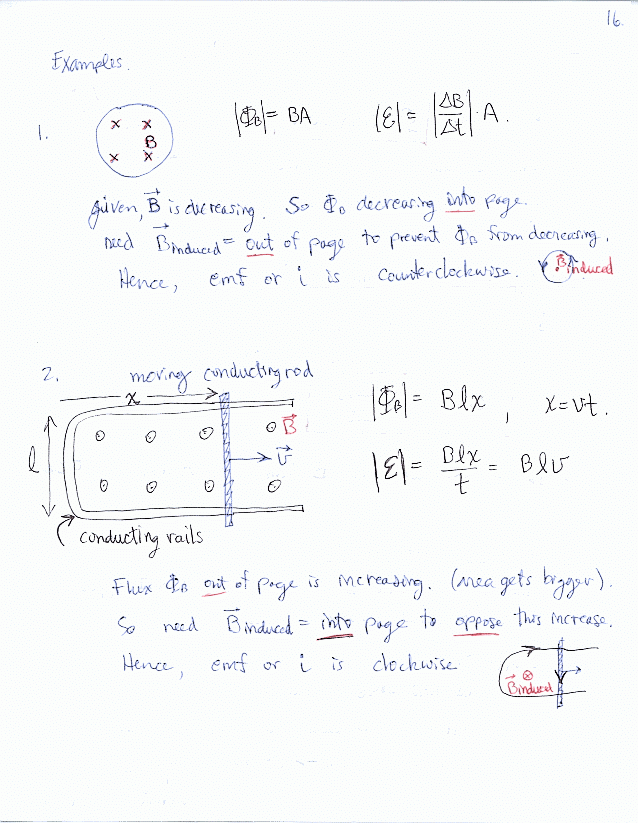 16.
Examples.
1.
x x
B
x x
|Φ_B| = BA |ε| = |ΔB/Δt| · A.
given, B⃗ is decreasing. So Φ_B decreasing into page.
need B⃗ induced = out of page to prevent Φ_B from decreasing.
Hence, emf or i is counterclockwise. B⃗ induced
2. moving conducting rod
x
|Φ_B| = Blx , x = vt.
B⃗
l
v⃗
|ε| = Blx/t = Blv
conducting rails
Flux Φ_B out of page is increasing. (area gets bigger).
So need B⃗ induced = into page to oppose this increase.
Hence, emf or i is clockwise
B⃗ induced